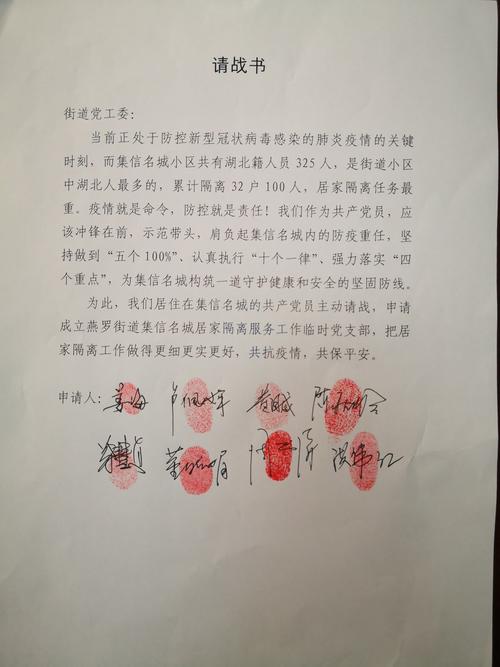 请战书
街道党工委：
当前正处于防控新型冠状病毒感染的肺炎疫情的关键
时刻，而集信名城小区共有湖北籍人员 325 人，是街道小区
中湖北人最多的，累计隔离 32 户 100 人，居家隔离任务最
重。疫情就是命令，防控就是责任！我们作为共产党员，应
该冲锋在前，示范带头，肩负起集信名城内的防疫重任，坚
持做到“五个 100%”、认真执行“十个一律”、强力落实“四
个重点”，为集信名城构筑一道守护健康和安全的坚固防线。
为此，我们居住在集信名城的共产党员主动请战，申请
成立燕罗街道集信名城居家隔离服务工作临时党支部，把居
家隔离工作做得更细更实更好，共抗疫情，共保平安。
申请人：